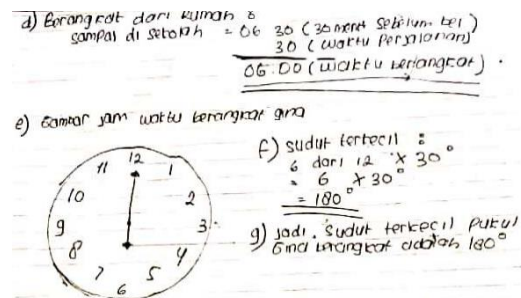 d) Berangkat dari rumah :
sampai di sekolah = 06 30 (30 menit sebelum bel)
30 (waktu Perjalanan)
06.00 (waktu berangkat).
e) Gambar jam waktu berangkat gina
12
11 1
10 2
9 3
8 4
7 5
6
f) sudut terkecil :
6 dari 12 × 30°
= 6 × 30°
= 180°
g) Jadi. sudut terkecil Pukul
Gina berangkat adalah 180°